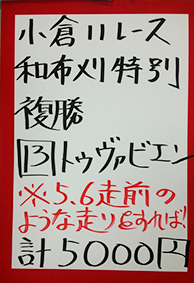 小倉11レース
和布刈特別
複勝
13トゥヴァビエン
※5.6走前の
ような走りをすれば!
計5000円